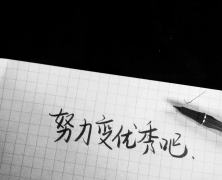 努力变优秀吧.